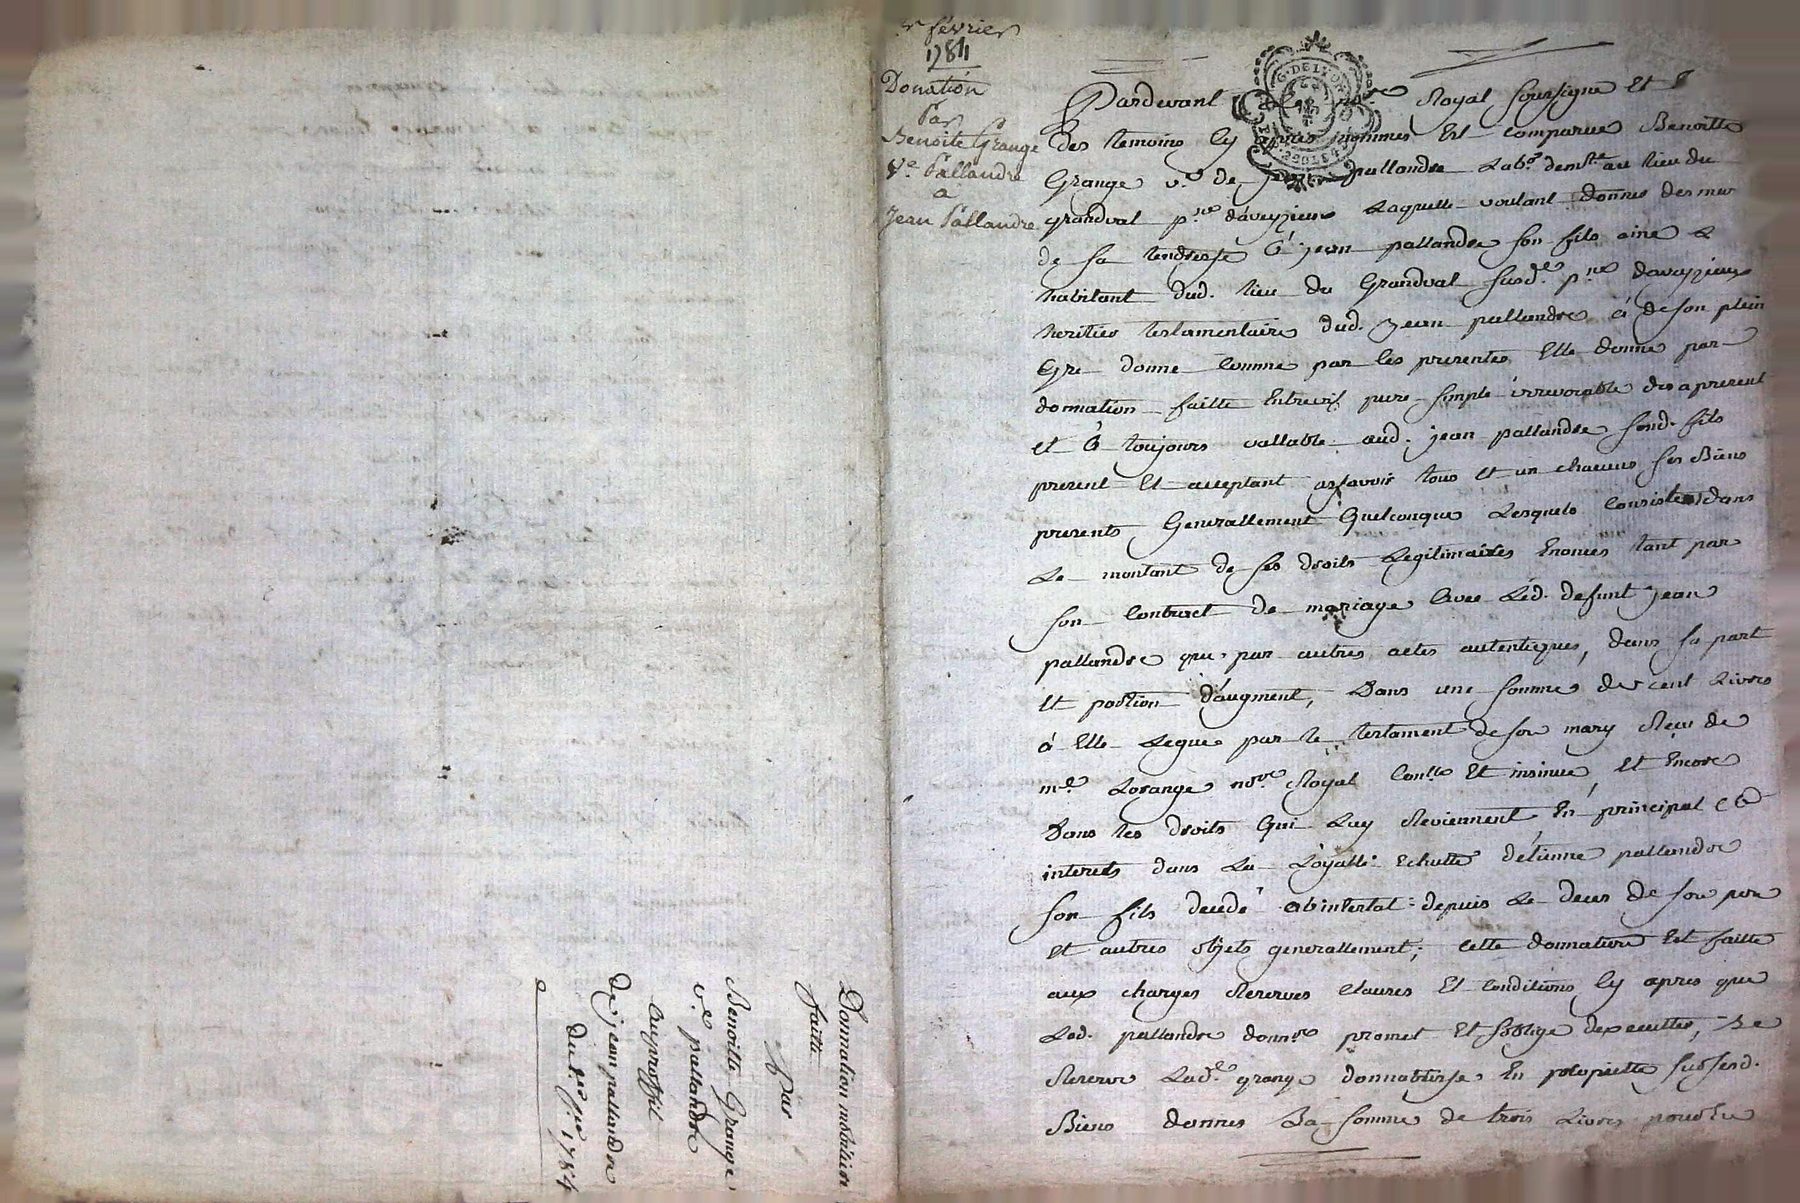 Donnation mobiliaire
faitte
Par
Benoitte Grange
v.e pallandre
au proffit
de jean pallandre
du 1.er f.er 1784
1.r février
1784
Donation
Par
Benoite Grange
V.e Pallandre
à
Jean Pallandre
G. DE LYON
Pardevant le no.re Royal soussigné et
des temoins cy apres nommés Est comparue Benoitte
Grange v.e de jean pallandre Lab.r dem.te au lieu du
grandval p.sse d'aveyzieux Laquelle voulant donner des mar
de sa tendresse à jean pallandre son fils ainé &
habitant dud. lieu du Grandval susd.e p.sse daveyzieux
heritier testamentaire dud. jean pallandre à de son plein
Gré donné comme par les presentes Elle donne par
donnation faitte Entrevif pure simple irrevocable des a present
et à toujours vallable aud. jean pallandre sond. fils
present Et acceptant assavoir tous et un chacuns ses Biens
presents Generallement Quelconques Lesquels Consistent dans
Le montant de ses droits Legitimaires Enoncés tant par
son Contract de mariage avec Led. defunt jean
pallandre que par autres actes autentiques, dans sa part
Et portion d'augment, Dans une somme de cent Livres
à Elle Leguée par le testament de son mary Recu de
m.e Lorange no.re Royal Con.lle Et insinué, Et Encore
Dans les droits Qui Luy Reviennent En principal &
interets dans La Loyalle Echutte d'étienne pallandre
son fils decedé abintestat depuis Le deces de son pere
et autres objets generallement; cette donnation Est faitte
aux charges Reserves Clauses Et Conditions Cy apres que
Led. pallandre donn.re promet Et s'oblige dexecutter, Se
Reserve Lad.e grange donnatrice En propriette sur sesd.
Biens donnés La somme de trois Livres pour En